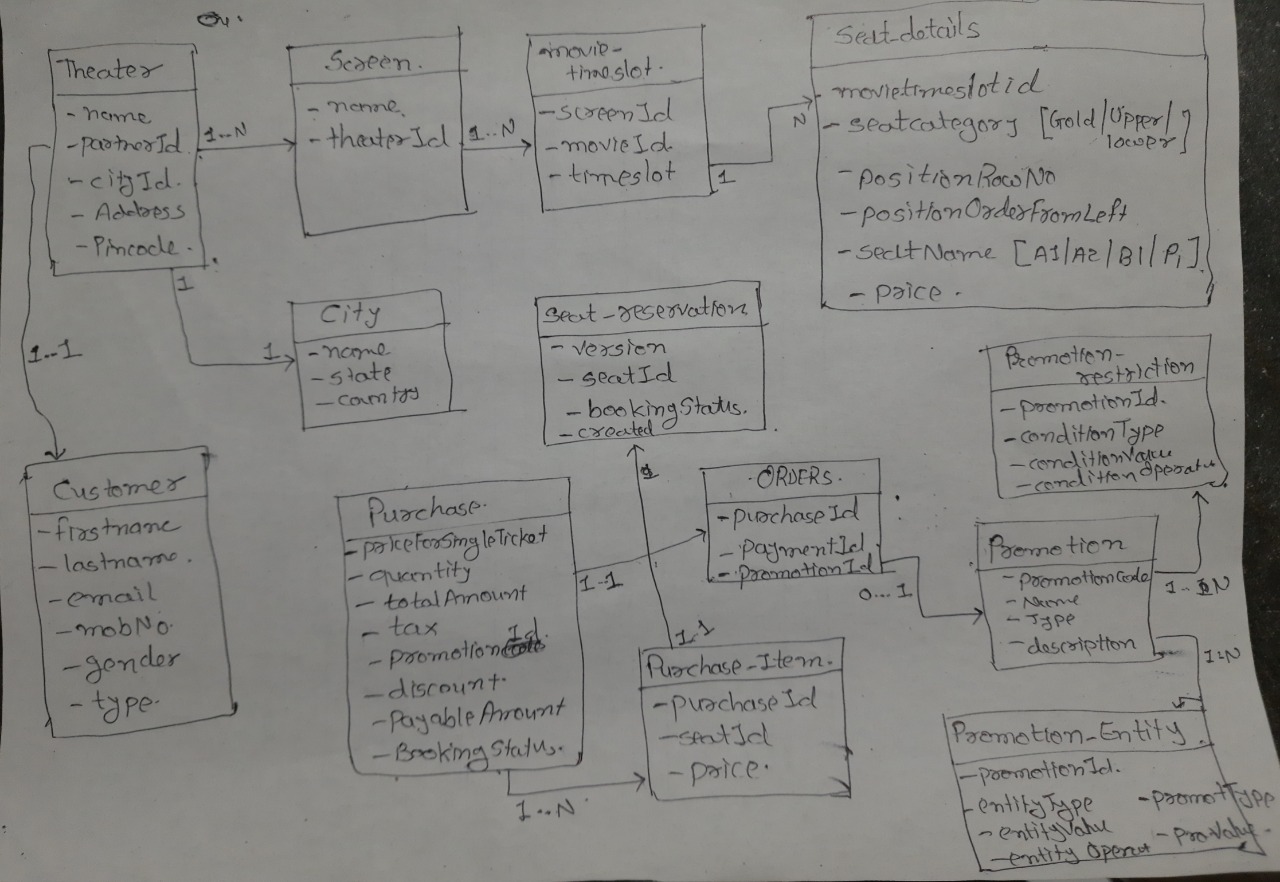 Theater
- name
- partnerId
- cityId.
- Address
- Pincode.
1..N
Screen.
- name.
- theaterId
1..N
movie-
timeslot.
- screenId
- movieId.
- timeslot
1
N
Seat-details
- movietimeslotid
- seatcategory [Gold/Upper/
lower]
- positionRowNo
- positionOrderFromLeft
- seatName [A1/A2/B1/P1]
- price.
1
1
City
- name
- state
- country
1..1
Seat-reservation
- version
- seatId
- bookingStatus.
- created
Promotion-
restriction
- promotionId.
- conditionType
- conditionValue
Customer
- firstname
- lastname.
- email
- mobNo.
- gender
- type.
Purchase.
- priceForSingleTicket
- quantity
- totalAmount
- tax
- promotionId
- discount.
- payableAmount
- BookingStatus.
1..1
1..N
ORDERS.
- purchaseId
- paymentId
- promotionId
0...1
Promotion
- promotionCode
- Name
- Type
- description
1:N
1.1
Purchase-Item.
- purchaseId
- seatId
- price.
Promotion-Entity.
- promotionId.
- entityType
- promotType
- entityValue
- proValue.